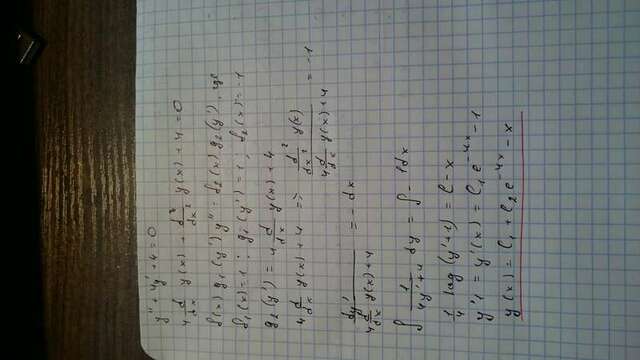 y'' + 4y' + 4 = 0
4 d/dx y(x) + d²/dx² y(x) + 4 = 0
f₁(x) g₁(y') y'' = f₂(x) g₂(y'), где
f₁(x) = 1 ; g₁(y') = 1 ; f₂(x) = -1
g₂(y') = 4 d/dx y(x) + 4
4 d/dx y(x) + 4 => (d²/dx² y(x)) / (4 d/dx y(x) + 4) = -1
dy' / (4 d/dx y(x) + 4) = -dx
∫ 1/(4y' + 4) dy = ∫ -1 dx
1/4 log(y' + 1) = C - x
y'1 = y'(x) = C₁ e^(-4x) - 1
y(x) = C₁ + C₂ e^(-4x) - x